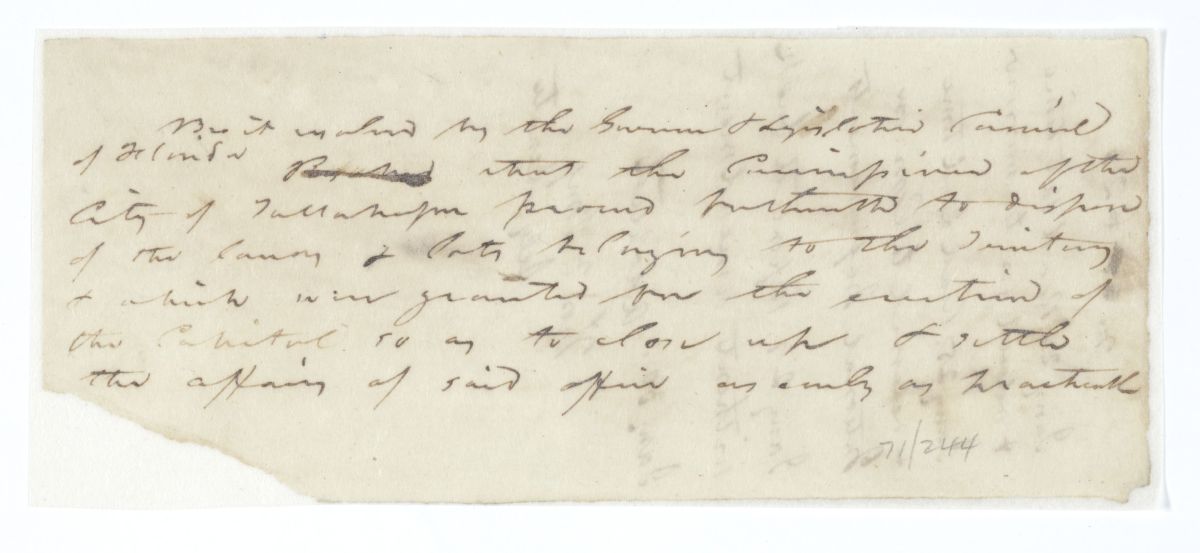 Be it resolved by the Governor & Legislative Council
of Florida that the Commissioner of the
City of Tallahassee proceed forthwith to dispose
of the lands & lots belonging to the Territory
& which were granted for the erection of
the Capitol so as to close up & settle
the affairs of said office as early as practicable
71/244